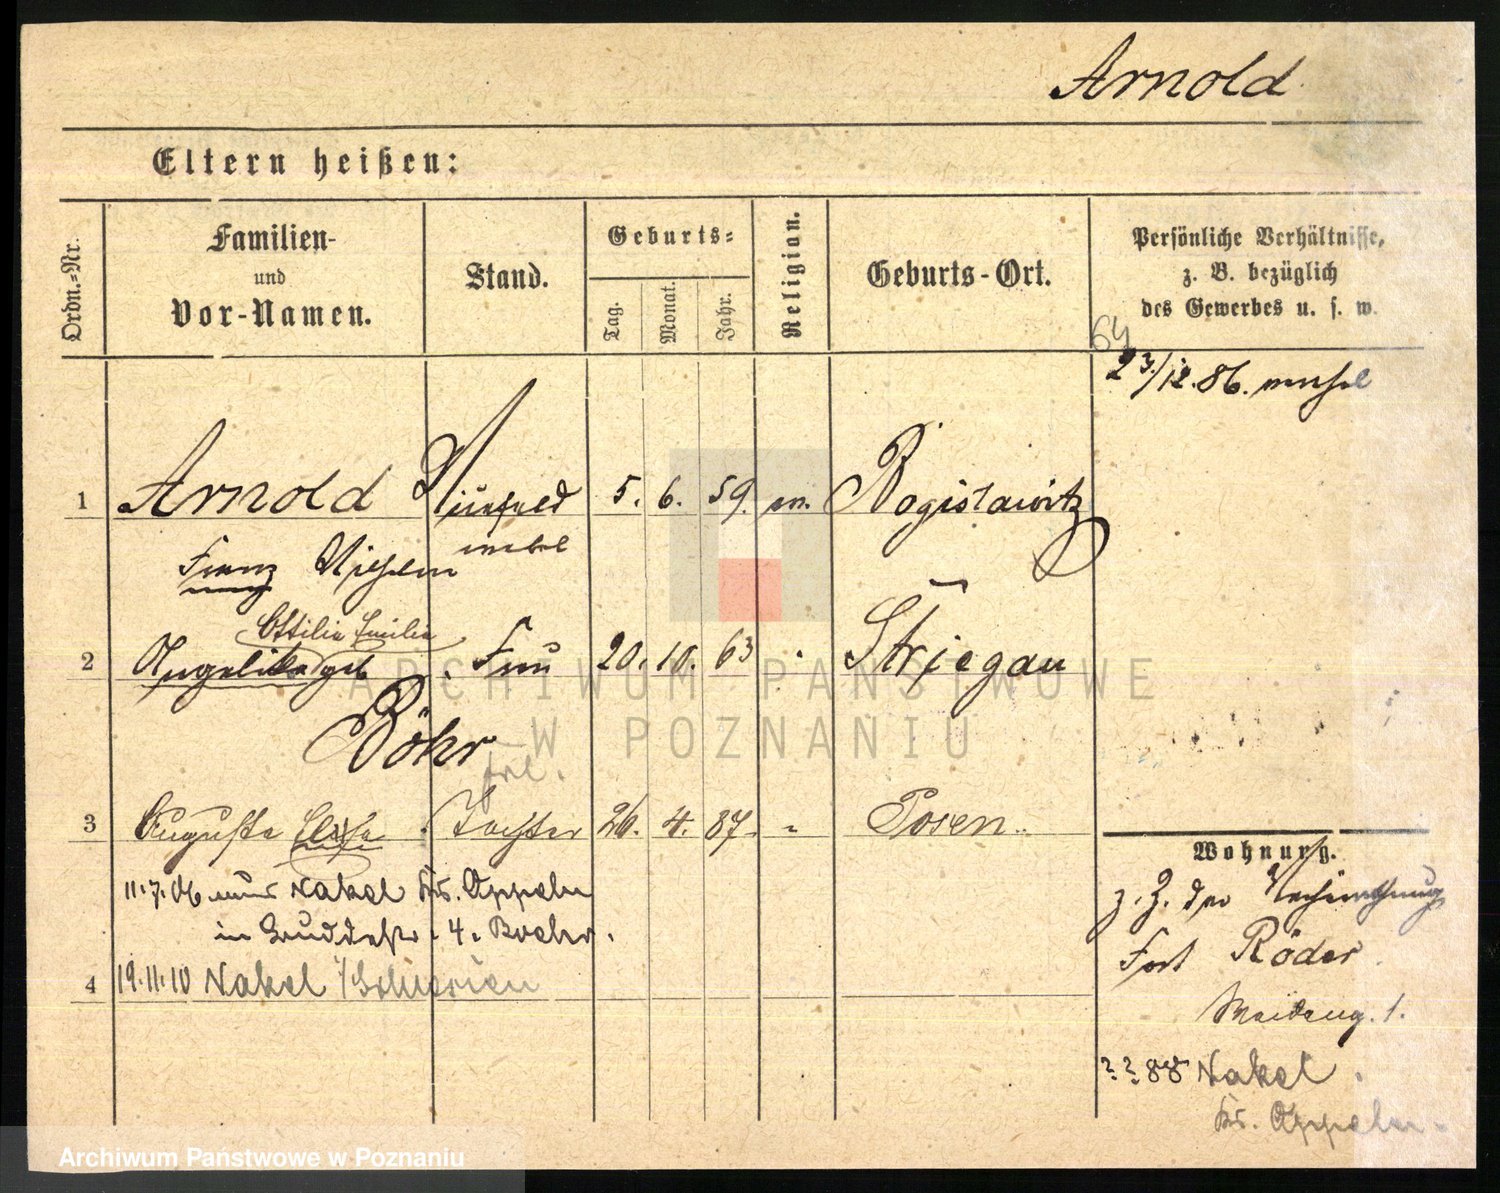 Arnold
Eltern heißen:
Ordn.=Nr.
Familien-
und
Vor-Namen.
Stand.
Geburts=
Tag.
Monat.
Jahr.
Religion.
Geburts-Ort.
Persönliche Verhältnisse,
z. B. bezüglich
des Gewerbes u. s. w.
64
23./12.86.
1 Arnold 5. 6. 59. Bogislawitz
Franz Wilhelm
Ottilie Emilie
2 Angelika geb Frau 20. 10. 63 Striegau
Böhr
3 Auguste Elisa Tochter 26. 4. 87. " Posen
11.7.06 Nakel Kr. Oppeln
in 4.
4 19.11.10 Nakel
Wohnung.
z. Z. der
Fort Röder
1.
? ? 88 Nakel
Kr. Oppeln
ARCHIWUM PAŃSTWOWE
W POZNANIU
Archiwum Państwowe w Poznaniu